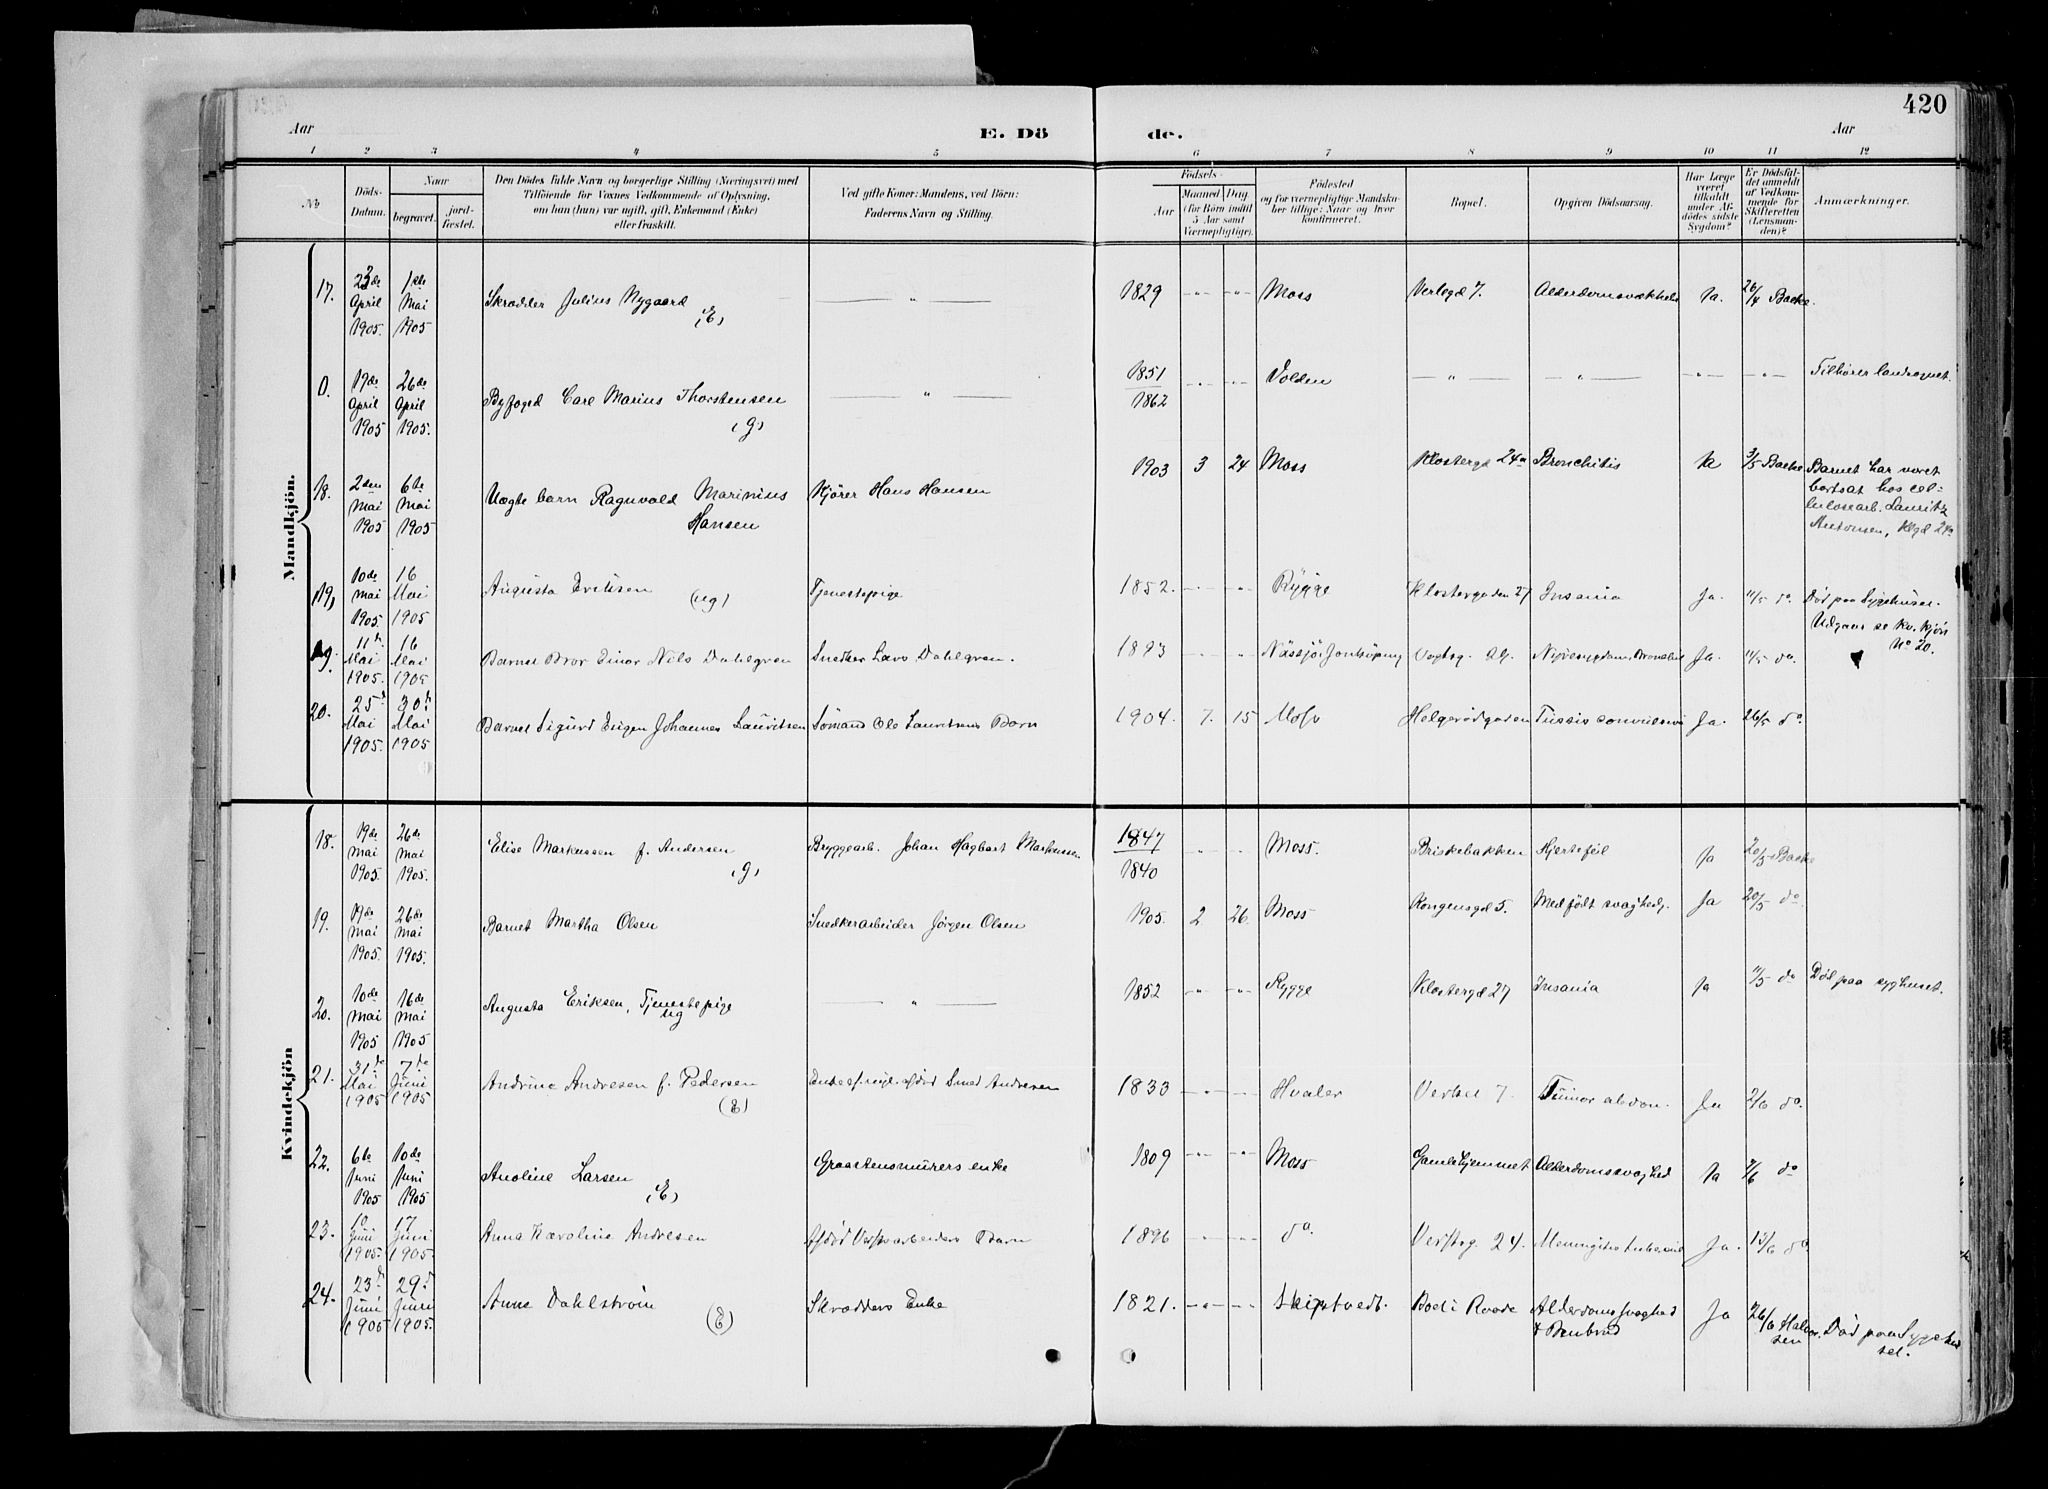 420
Aar
E. Dö
de.
Aar
1 2 3 4 5 6 7 8 9 10 11 12
No
Döds-
Datum.
Naar
begravet.
jord-
fæstet.
Den Dödes fulde Navn og borgerlige Stilling (Næringsvei) med
Tilföiende for Voxnes Vedkommende af Oplysning,
om han (hun) var ugift, gift, Enkemand (Enke)
eller fraskilt.
Ved gifte Koner: Mandens, ved Börn:
Faderens Navn og Stilling.
Födsels-
Aar
Maaned
Dag
(for Börn indtil
5 Aar samt
Værnepligtige).
Födested
og for værnepligtige Mandska-
ber tillige: Naar og hvor
konfirmeret.
Bopæl.
Opgiven Dödsaarsag.
Har Læge
været
tilkaldt
under Af-
dödes sidste
Sygdom?
Er Dödsfal-
det anmeldt
af Vedkom-
mende for
Skifteretten
(Lensman-
den)?
Anmærkninger.
Mandkjön.
17. 23de April 1905. 1ste Mai 1905 Skrædder Julius Nygaard (E) — " — 1829 -"- -"- Moss Verlegd 7. Alderdomssvækkels Ja. 26/4 Backe.
0. 19de April 1905 26de April 1905. Byfoged Carl Marius Thorstensen (g) — " — 1851 1862 -"- -"- Volden — " — — " — -"- -"- Tilhører landsognet.
18. 2den Mai 1905 6te Mai 1905 Uægte barn Ragnvald Marinius Hansen Kjører Hans Hansen 1903 3 24 Moss Klostergd 24a Bronchitis Ja 3/5 Backe Barnet har været
bortsat hos cel-
lulosearb. Lauritz
Antonsen, Klgd 24a
19, 10de Mai 1905. 16 Mai 1905 Augusta Eriksen (ug) Tjenestepige 1852. -"- " Rygge Klostergaden 27 Insania Ja. 11/5 do. Død paa Sygehuset.
Udgaar se kv. kjön
No 20.
19. 11te Mai 1905. 16 Mai 1905 Barnet Bror Einar Nils Dahlgren Snedker Lars Dahlgren. 1893 -"- " Nässjö, Jonköping Vogtsg. Nyresygdom, Bronchit Ja. 11/5 do.
20. 25de Mai 1905. 30te Mai 1905 Barnet Sigurd Eugen Johannes Lauritsen Sömand Ole Lauritsens Barn 1904. 7. 15 Moss Helgerødgaden Tussis convulsiva Ja. 26/5 do.
Kvindekjön
18. 19de Mai 1905. 26de Mai 1905. Elise Markussen f. Andersen (g) Bryggearb. Johan Hagbart Markussen 1847 1840 " -"- Moss. Briskebakken Hjertefeil Ja 20/5 Backe
19. 19de Mai 1905. 26de Mai 1905. Barnet Martha Olsen Snedkerarbeider Jörgen Olsen 1905. 2 26. Moss Kongensgd 5. Medfödt svaghed. Ja 20/5 do.
20. 10de Mai 1905 16de Mai 1905 Augusta Eriksen, Tjenestepige ug — " — 1852 -"- -"- Rygge Klostergd 27 Insania Ja 11/5 do Död paa syghuset.
21. 31te Mai 1905 7de Juni 1905 Andrine Andresen f. Pedersen (E) Enke ef. afdöd Smed Andresen 1833 — " — Hvaler Verket 7. Tumor abdom. Ja 2/6 do.
22. 6te Juni 1905 10de Juni 1905 Anoline Larsen (E) Graastensmurers enke 1809 -"- -"- Moss Gamlehjemmet Alderdomssvaghed Ja 7/6 do
23. 10 Juni 1905. 17 Juni 1905. Anna Karoline Andresen Afdöd Verftsarbeiders Barn 1896 -"- do. Verftsg. 24. Meningitis tubercul Ja. 13/6 do.
24. 23de Juni 1905 29de Juni 1905. Anne Dahlström (E) Skrædders Enke 1821. -"- Skiptvedt. Boet i Raade Alderdomssvaghed
& Benbrud Ja 26/6 Halvor-
sen Död paa Sygehu
set.